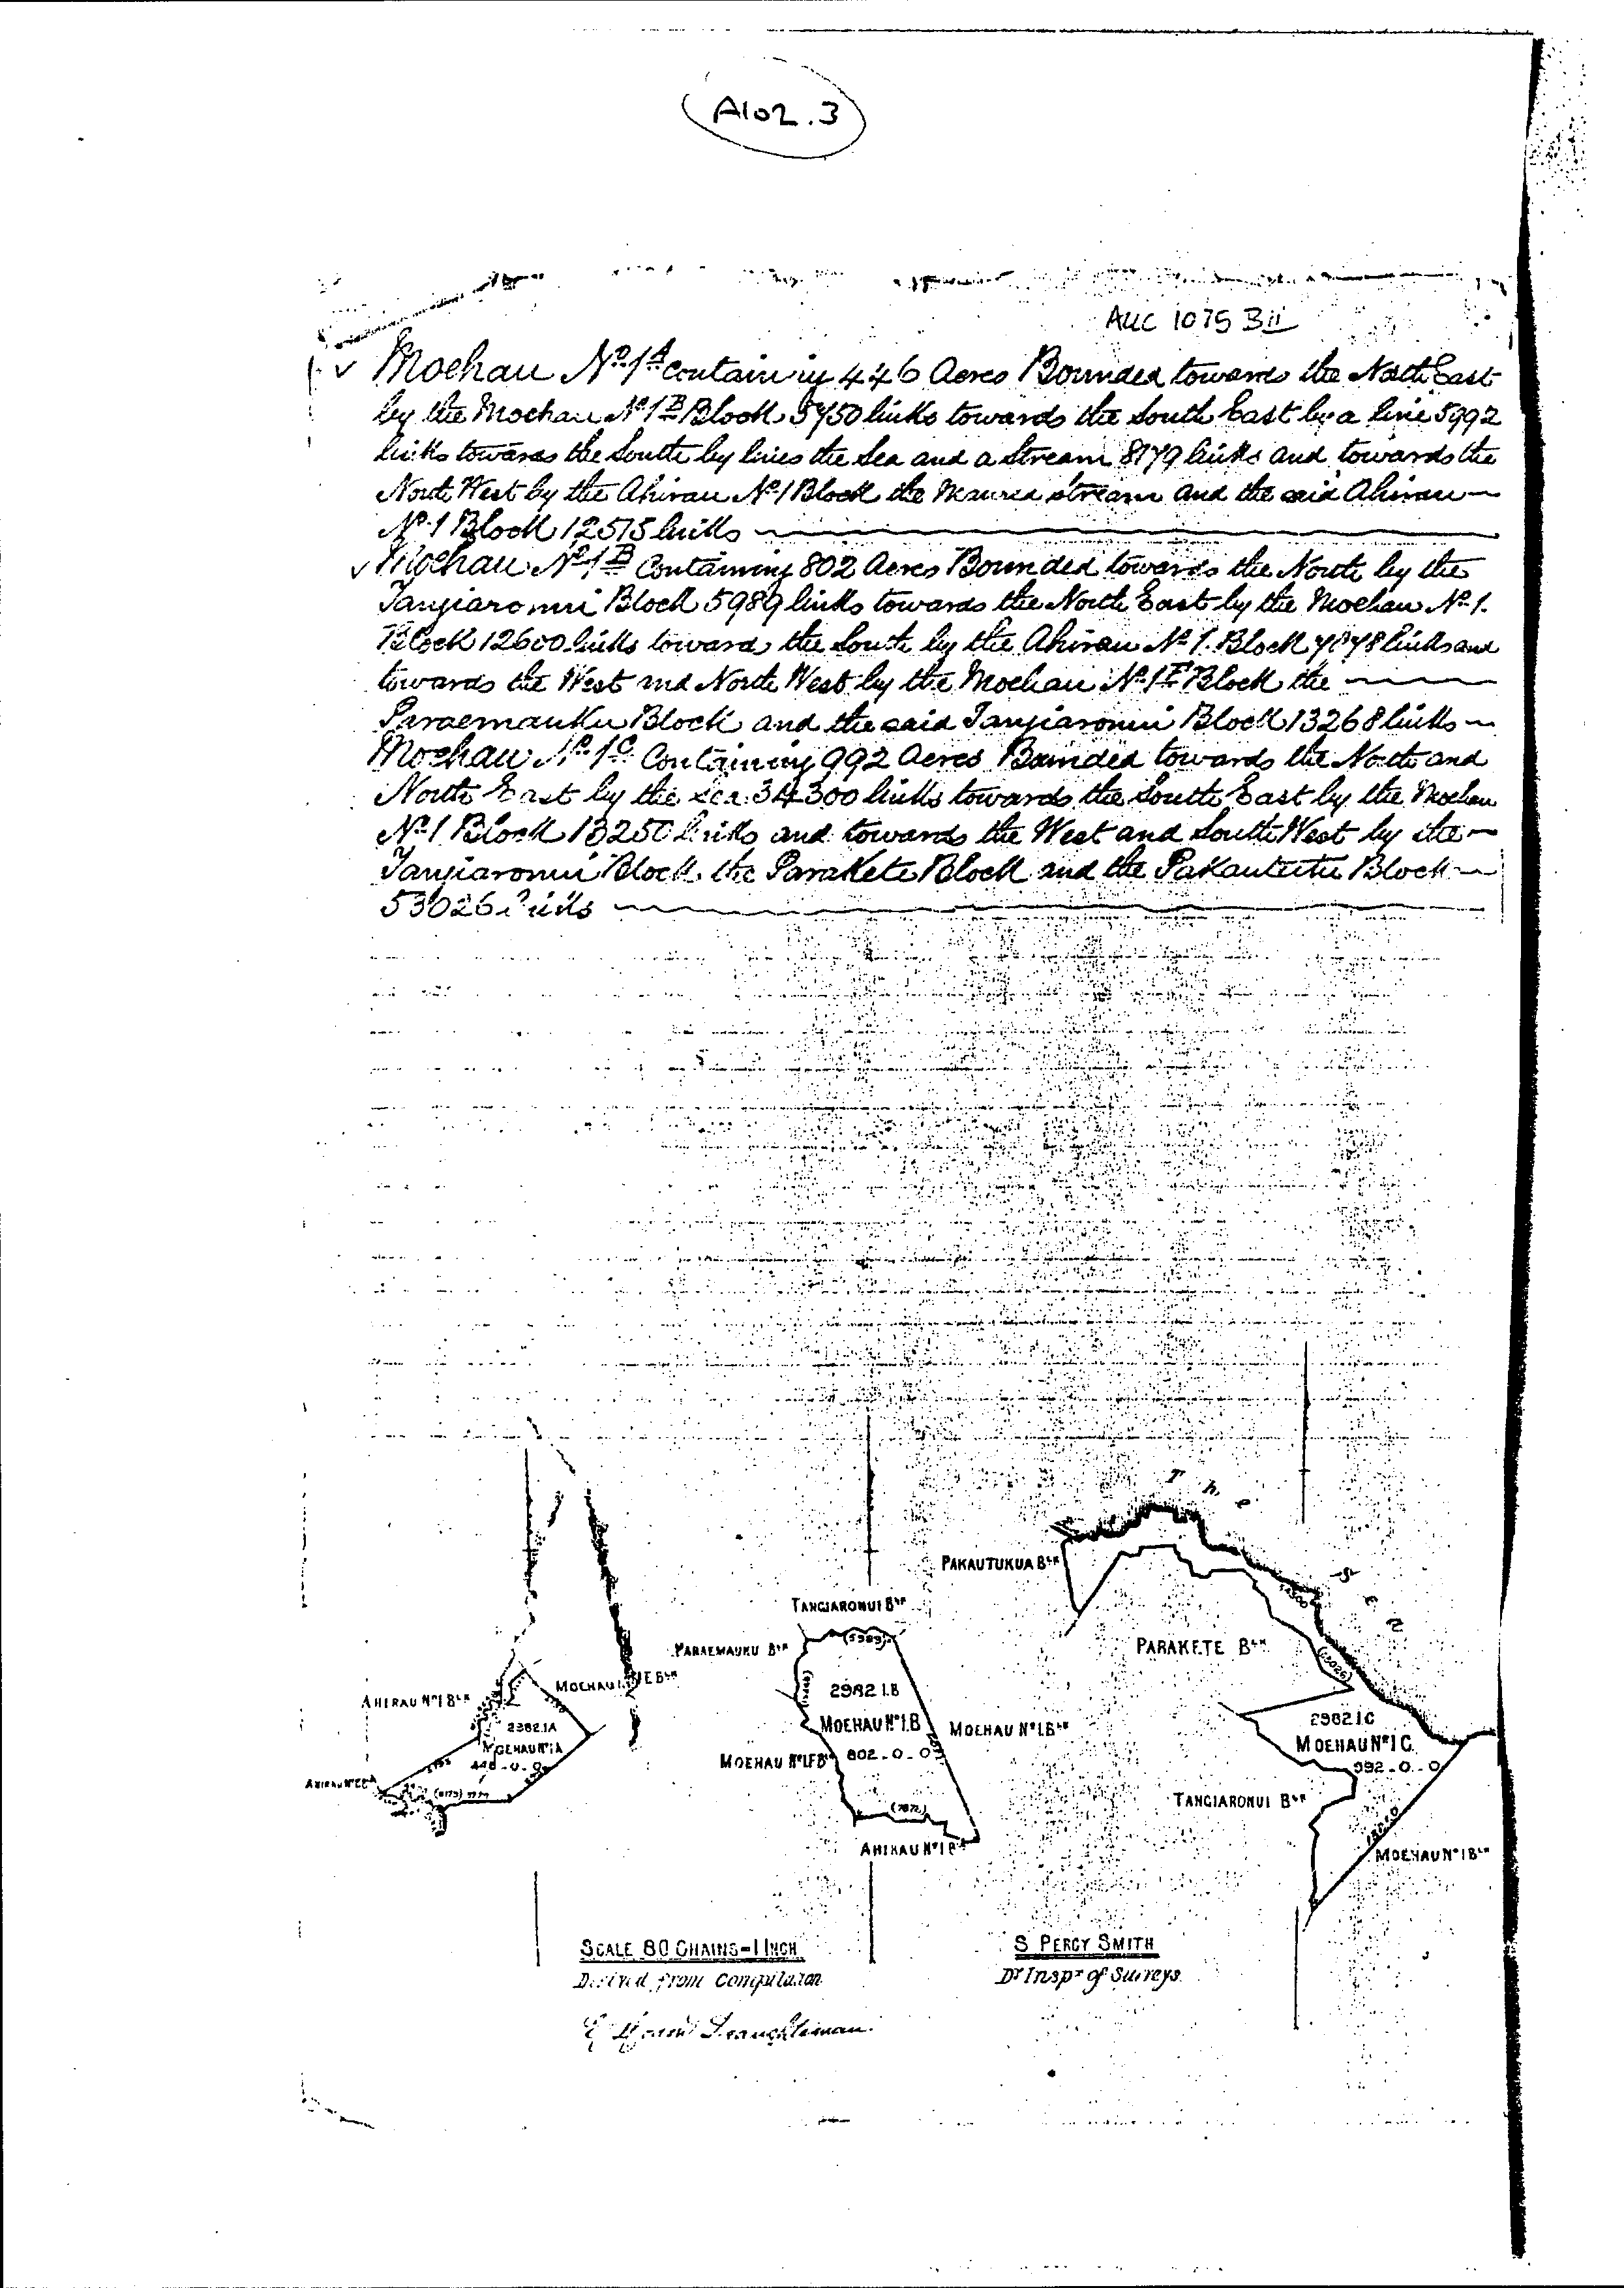 A102.3
AUC 1075 BII
Moehau No. 1A containing 446 Acres Bounded towards the North East
by the Moehau No. 1B Block 5450 links towards the South East by a line 5992
links towards the South by lines the Sea and a Stream 8179 links and towards the
North West by the Ahirau No. 1 Block the stream and the said Ahirau
No. 1 Block 12515 links
Moehau No. 1B Containing 802 Acres Bounded towards the North by the
Tangiaronui Block 5989 links towards the North East by the Moehau No. 1.
Block 12600 links toward the South by the Ahirau No. 1. Block links and
towards the West and North West by the Moehau No. 1F Block the
Paraemauku Block and the said Tangiaronui Block 13268 links
Moehau No. 1C Containing 992 Acres Bounded towards the North and
North East by the sea 34300 links towards the South East by the Moehau
No. 1 Block 13250 links and towards the West and South West by the
Tangiaronui Block the Parakete Block and the Block
53026 links
The
Sea
PAKAUTUKUA Blk
TANGIARONUI Blk
(5989)
PARAEMAUKU Blk
PARAKETE Blk
MOEHAU Blk
AHIRAU No 1 Blk
2982 1A
MOEHAU No 1A
446-0-0
(8179)
2982 1.B
MOEHAU No 1.B
802-0-0
MOEHAU No 1 Blk
MOEHAU No 1F Blk
AHIRAU No 1 B
2982 1C
MOEHAU No 1C
992-0-0
TANGIARONUI Blk
MOEHAU No 1 Blk
SCALE 80 CHAINS=1 INCH
Derived from Compilation
Draughtsman.
S PERCY SMITH
Dr Inspr of Surveys.